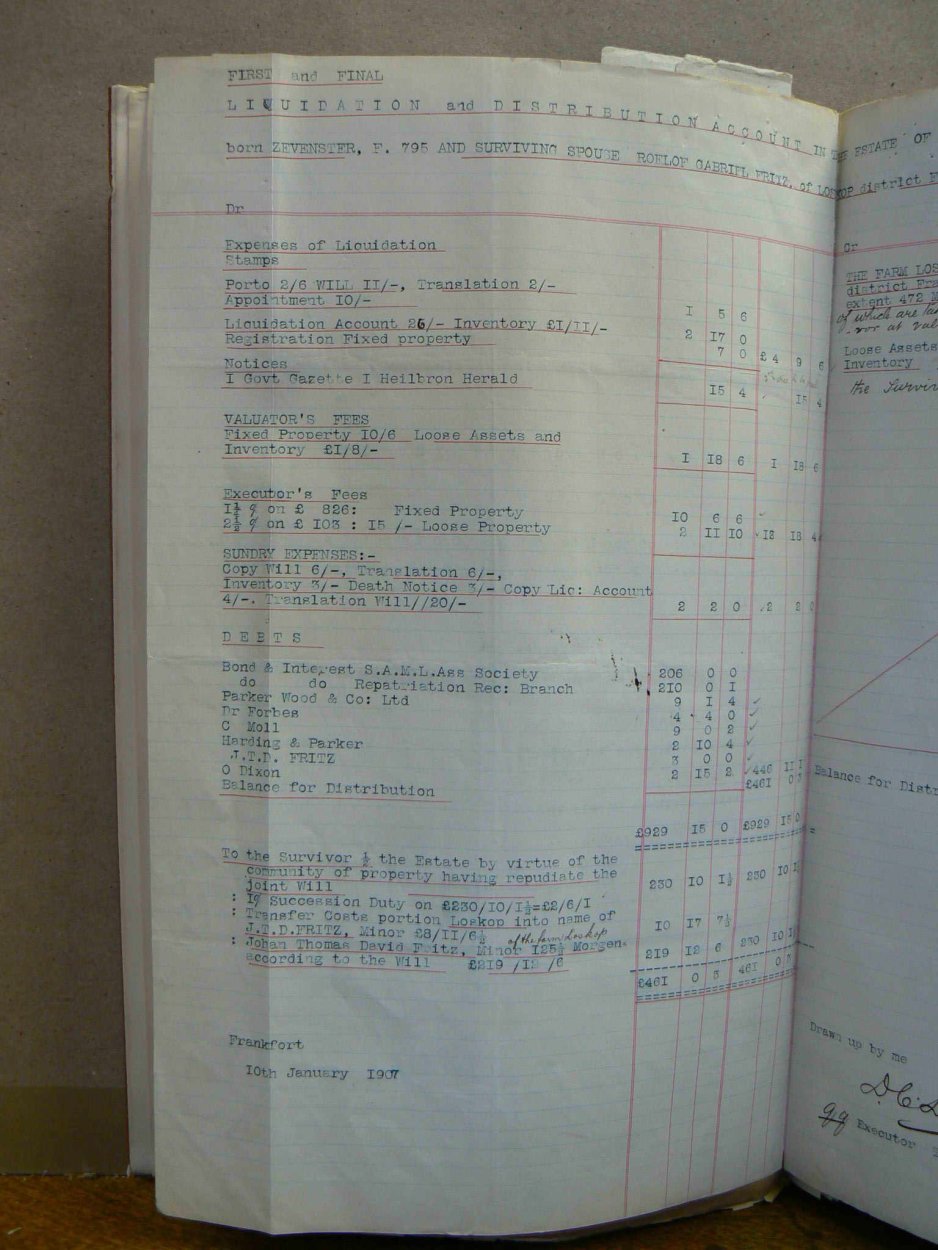 FIRST and FINAL
LIQUIDATION and DISTRIBUTION ACCOUNT IN THE ESTATE OF
born ZEVENSTER, F. 795 AND SURVIVING SPOUSE ROELOF GABRIEL FRITZ, of LOSKOP district
Dr
Expenses of Liquidation
Stamps
Porto 2/6 WILL II/-, Translation 2/-
Appointment IO/- I 5 6
Liquidation Account 26/- Inventory £I/II/- 2 I7 0
Registration Fixed property 7 0 £4 9 6
Notices
I Govt Gazette I Heilbron Herald I5 4 I5 4
VALUATOR'S FEES
Fixed Property IO/6 Loose Assets and
Inventory £I/8/- I I8 6 I I8 6
Executor's Fees
I¼ % on £ 826: Fixed Property IO 6 6
2½ % on £ I03 : I5 /- Loose Property 2 II IO I2 I8 4
SUNDRY EXPENSES:-
Copy Will 6/-, Translation 6/-,
Inventory 3/- Death Notice 3/- Copy Lic: Account
4/-. Translation Will//20/- 2 2 0 2 2 0
DEBTS
Bond & Interest S.A.M.L.Ass Society 206 0 0
do do Repatriation Rec: Branch 210 0 I
Parker Wood & Co: Ltd 9 I 4
Dr Forbes 4 4 0
C Moll 9 0 2
Harding & Parker 2 IO 4
J.T.D. FRITZ 3 0 0
O Dixon 2 I5 2 446 II I
Balance for Distribution £46I 0 3
£929 I5 0 £929 I5 0
To the Survivor ½ the Estate by virtue of the
community of property having repudiate the
joint Will 230 IO I½ 230 IO I½
: I% Succession Duty on £230/IO/I½=£2/6/I
: Transfer Costs portion Loskop into name of
J.T.D.FRITZ, Minor £8/II/6½ IO I7 7½
of the farm Loskop
: Johan Thomas David Fritz, Minor I25½ Morgen
according to the Will £2I9 /I2 /6 2I9 I2 6 230 IO I
£46I 0 3 46I 0 3
Frankfort
IOth January I907
Cr
THE FARM
district
extent 472
of which are
Loose Assets
Inventory
the
Balance for
Drawn up by me
qq Executor